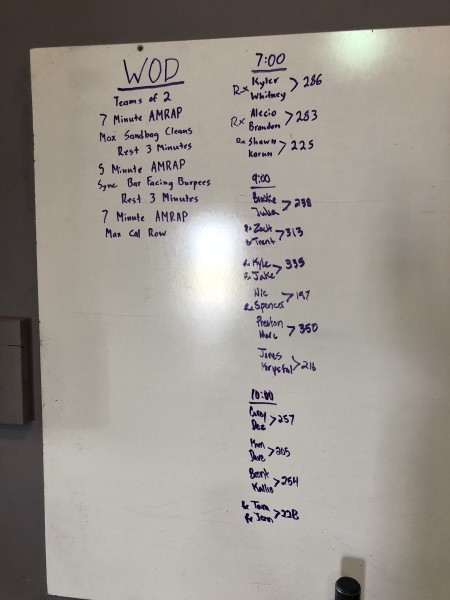 WOD
Teams of 2
7 Minute AMRAP
Max Sandbag Cleans
Rest 3 Minutes
5 Minute AMRAP
Sync Bar Facing Burpees
Rest 3 Minutes
7 Minute AMRAP
Max Cal Row
7:00
Rx Kyler
Whitney > 286
Rx Alecio
Brandon > 283
Rx Shawn
Karun > 225
9:00
Brooke
> 238
Rx Zach
Rx Trent > 313
Rx Kyle
Rx Jake > 335
Nic
Rx Spencer > 197
Preston
Marc > 350
James
Krystal > 216
10:00
Corey
Dez > 257
Kim
Dave > 205
Brent
Kallie > 254
Rx Tara
Rx Jenn > 228